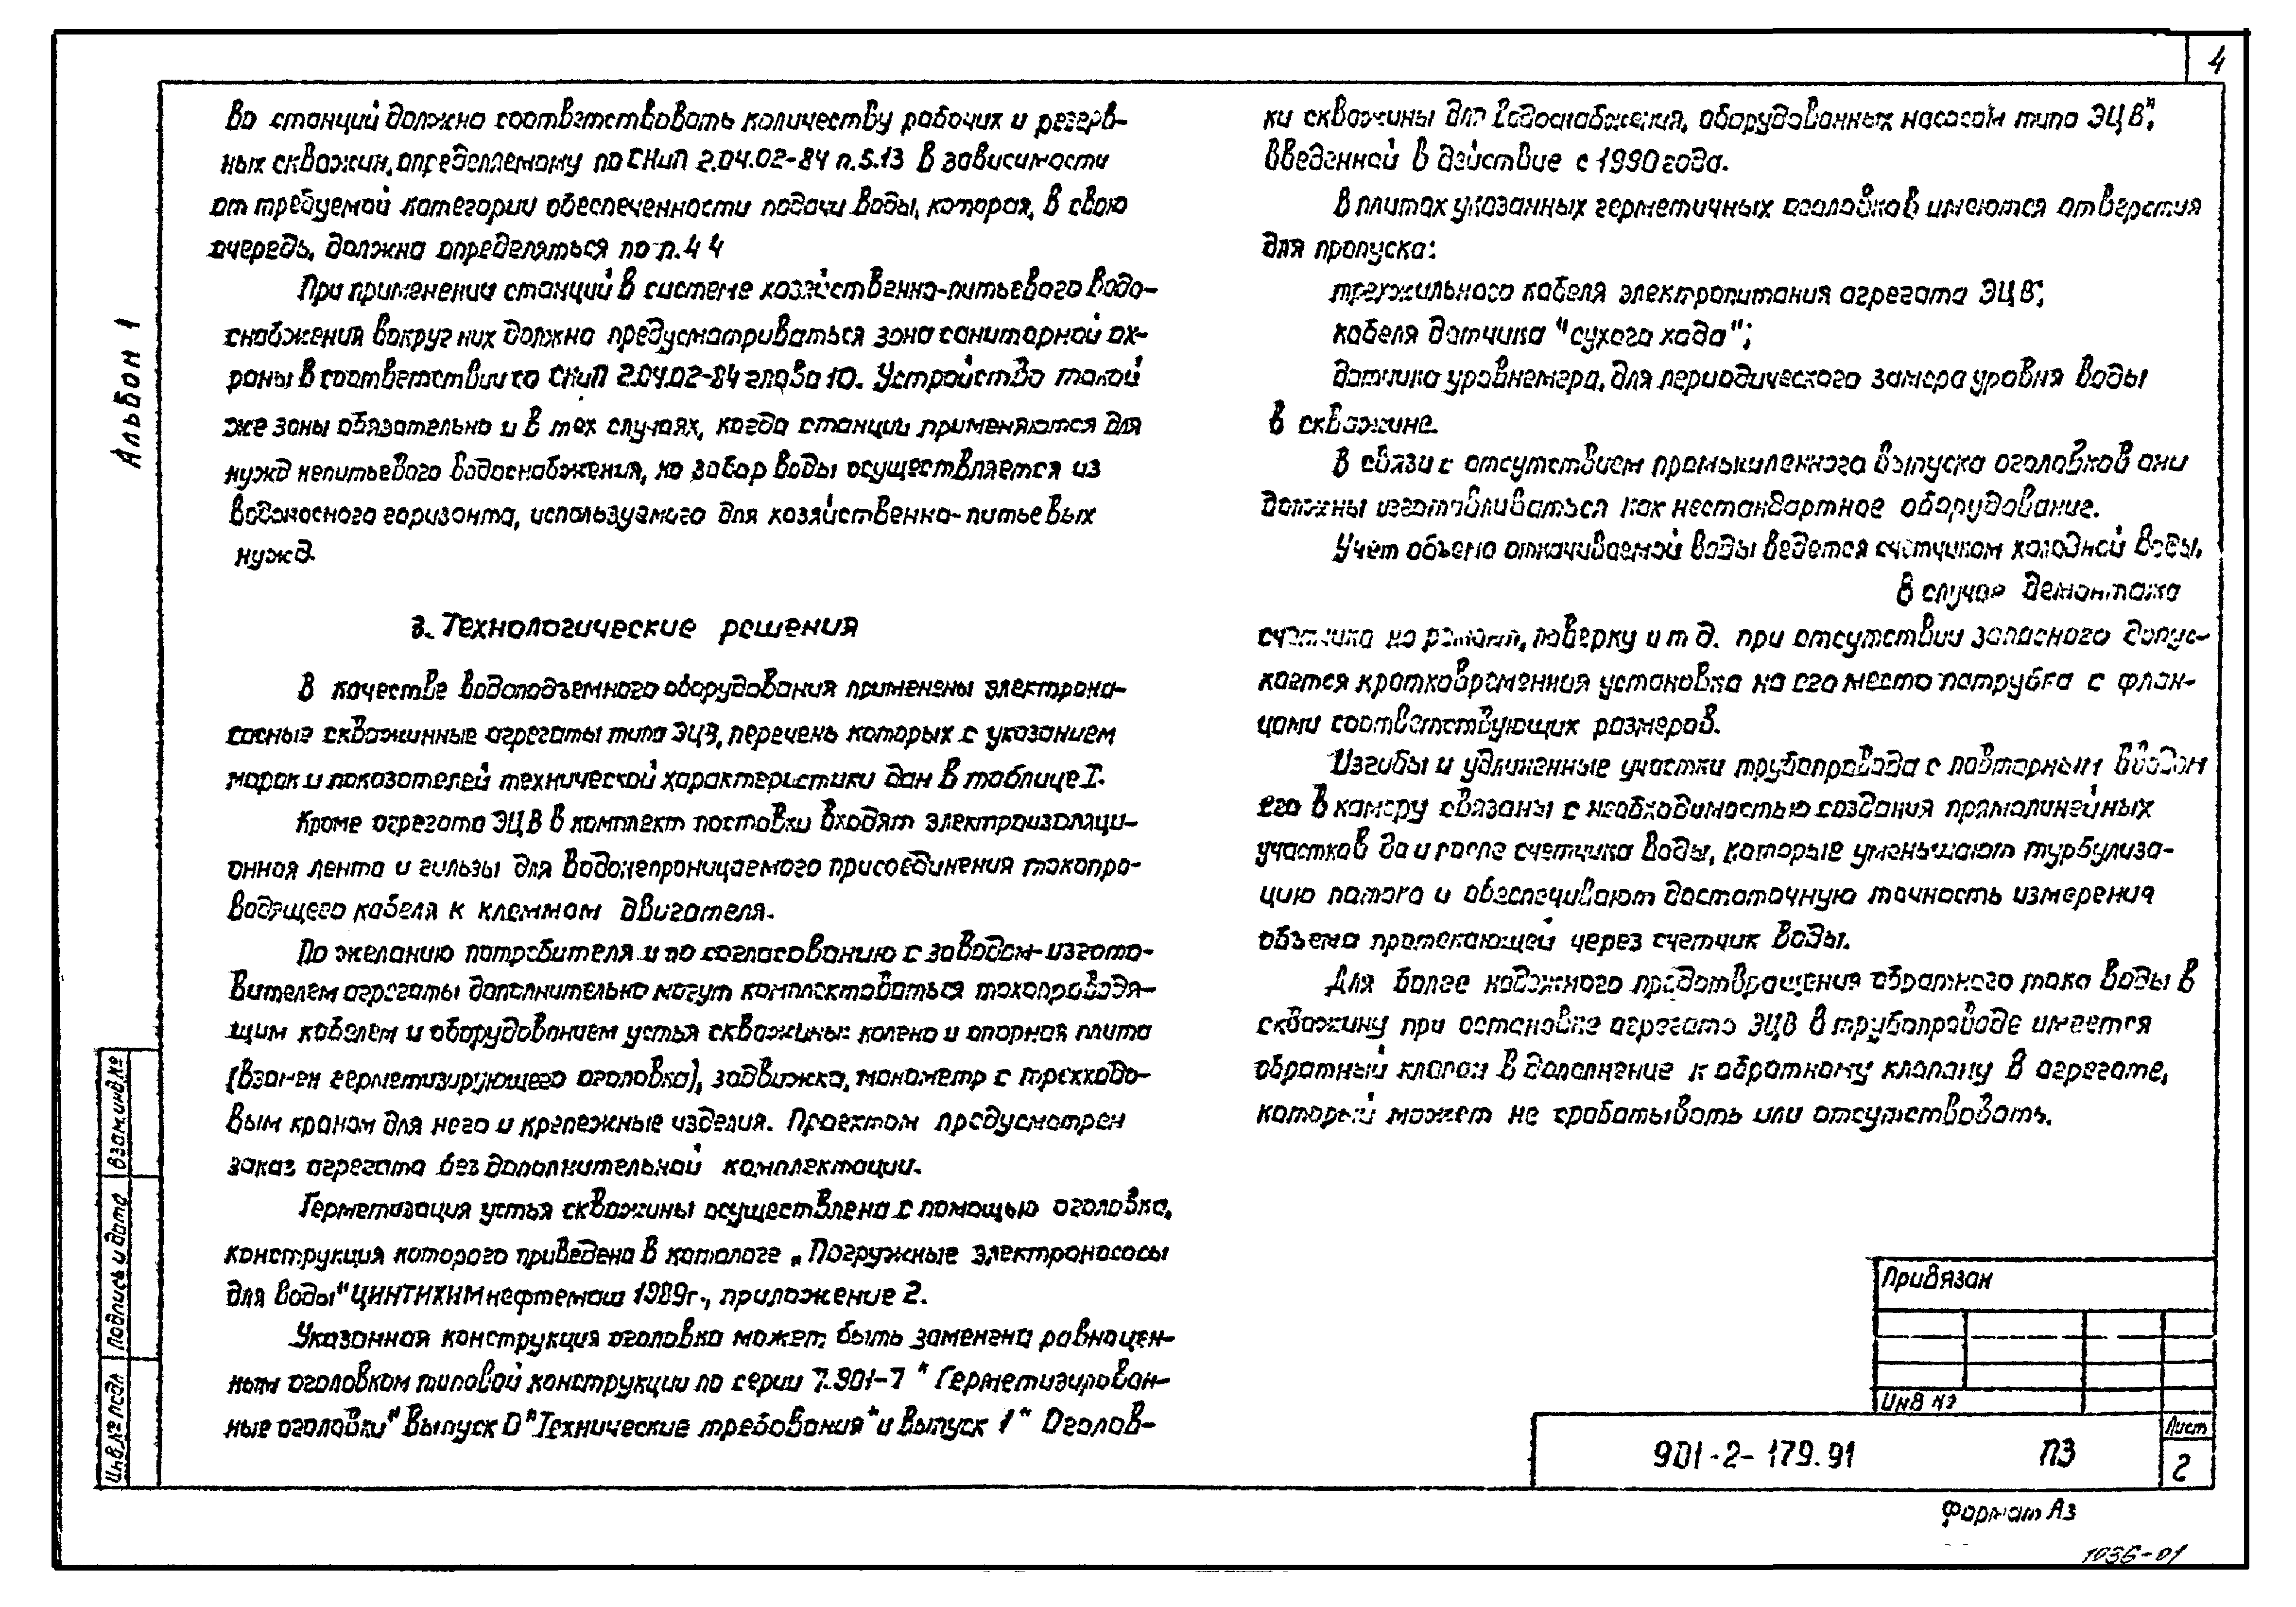 4
Альбом 1
во станций должно соответствовать количеству рабочих и резерв-
ных скважин, определяемому по СНиП 2.04.02-84 п.5.13 в зависимости
от требуемой категории обеспеченности подачи воды, которая, в свою
очередь, должна определяться по п.4 4
При применении станций в системе хозяйственно-питьевого водо-
снабжения вокруг них должна предусматриваться зона санитарной ох-
раны в соответствии со СНиП 2.04.02-84 глава 10. Устройство такой
же зоны обязательно и в тех случаях, когда станции применяются для
нужд непитьевого водоснабжения, но забор воды осуществляется из
водоносного горизонта, используемого для хозяйственно-питьевых
нужд.
3. Технологические решения
В качестве водоподъемного оборудования применены электрона-
сосные скважинные агрегаты типа ЭЦВ, перечень которых с указанием
марок и показателей технической характеристики дан в таблице I.
Кроме агрегата ЭЦВ в комплект поставки входят электроизоляци-
онная лента и гильзы для водонепроницаемого присоединения токопро-
водящего кабеля к клеммам двигателя.
По желанию потребителя и по согласованию с заводом-изгото-
вителем агрегаты дополнительно могут комплектоваться токопроводя-
щим кабелем и оборудованием устья скважины: колено и опорная плита
(взамен герметизирующего оголовка), задвижка, манометр с трехходо-
вым краном для него и крепежные изделия. Проектом предусмотрен
заказ агрегата без дополнительной комплектации.
Герметизация устья скважины осуществлена с помощью оголовка,
конструкция которого приведена в каталоге „Погружные электронасосы
для воды" ЦИНТИХИМнефтемаш 1989г., приложение 2.
Указанная конструкция оголовка может быть заменена равноцен-
ным оголовком типовой конструкции по серии 7.901-7 "Герметизирован-
ные оголовки" Выпуск 0 "Технические требования" и Выпуск 1 " Оголов-
ки скважины для водоснабжения, оборудованных насосом типа ЭЦВ",
введенной в действие с 1990 года.
В плитах указанных герметичных оголовков имеются отверстия
для пропуска:
трехжильного кабеля электропитания агрегата ЭЦВ;
кабеля датчика "сухого хода";
датчика уровнемера, для периодического замера уровня воды
в скважине.
В связи с отсутствием промышленного выпуска оголовков они
должны изготавливаться как нестандартное оборудование.
Учет объема откачиваемой воды ведется счетчиком холодной воды.
В случае демонтажа
счетчика на ремонт, поверку и т д. при отсутствии запасного допус-
кается кратковременная установка на его место патрубка с флан-
цами соответствующих размеров.
Изгибы и удлиненные участки трубопровода с повторным вводом
его в камеру связаны с необходимостью создания прямолинейных
участков до и после счетчика воды, которые уменьшают турбулиза-
цию потока и обеспечивают достаточную точность измерения
объема протекающей через счетчик воды.
Для более надежного предотвращения обратного тока воды в
скважину при остановке агрегата ЭЦВ в трубопроводе имеется
обратный клапан в дополнение к обратному клапану в агрегате,
который может не срабатывать или отсутствовать.
Взам.инв.№
Подпись и дата
Инв.№ подл
Привязан
Инв №
901-2-179.91
ПЗ
Лист
2
Формат А3
1036-01